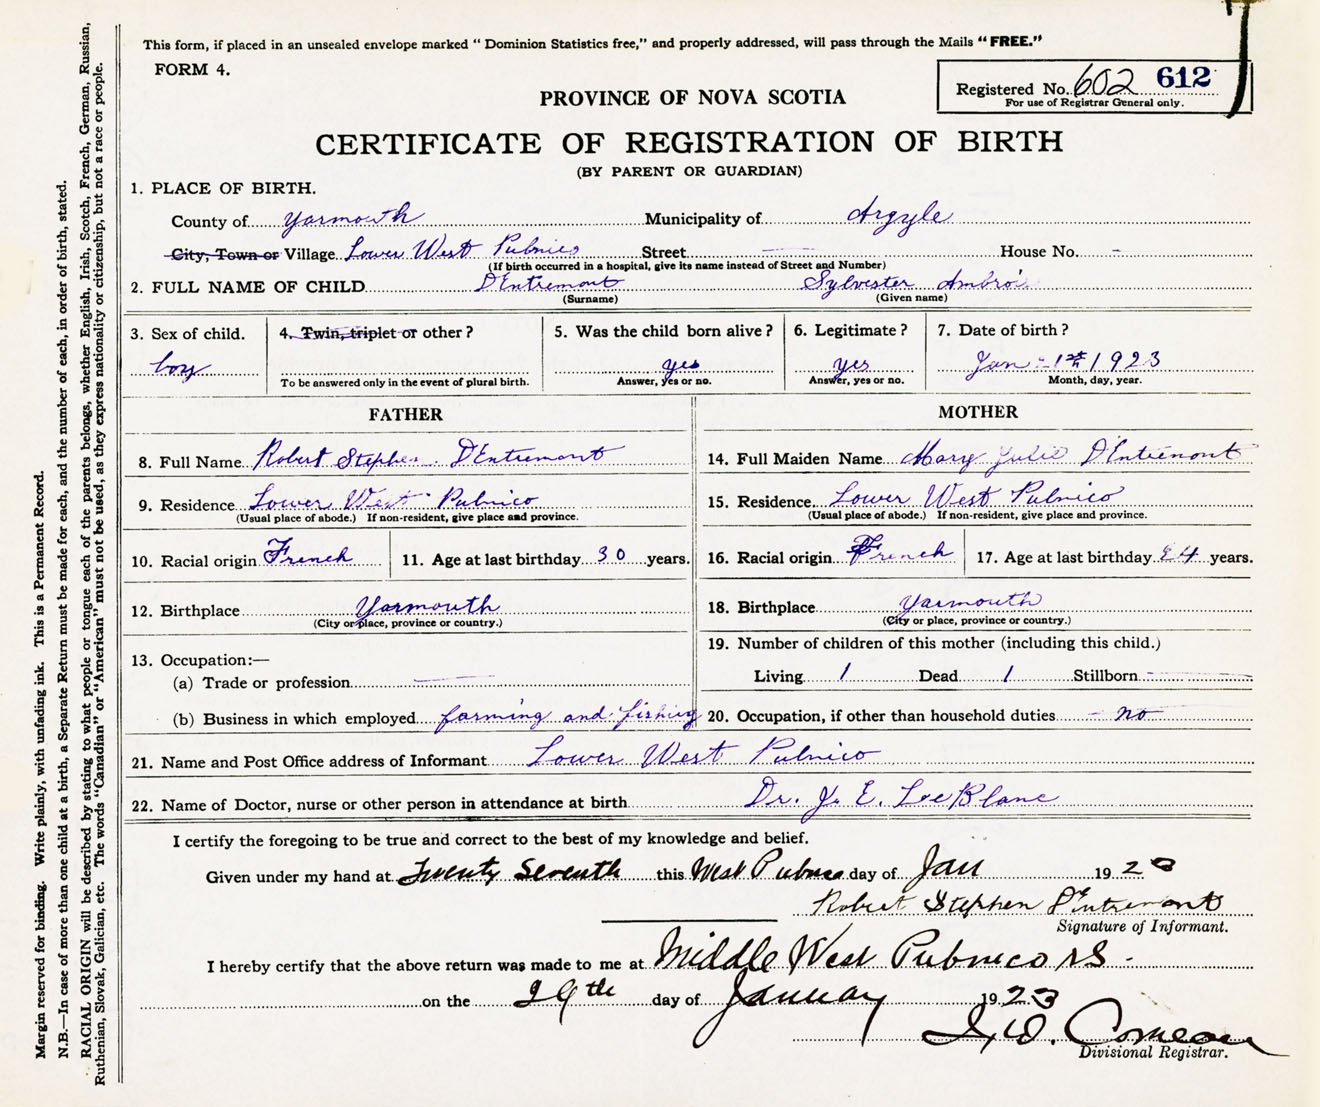 This form, if placed in an unsealed envelope marked “ Dominion Statistics free,” and properly addressed, will pass through the Mails “ FREE.”
FORM 4.
Registered No. 602 612
For use of Registrar General only.
PROVINCE OF NOVA SCOTIA
CERTIFICATE OF REGISTRATION OF BIRTH
(BY PARENT OR GUARDIAN)
1. PLACE OF BIRTH.
County of Yarmouth Municipality of Argyle
City, Town or Village Lower West Pubnico Street House No. -
(If birth occurred in a hospital, give its name instead of Street and Number)
2. FULL NAME OF CHILD D'Entremont Sylvester Ambroi
(Surname) (Given name)
3. Sex of child. 4. Twin, triplet or other ? 5. Was the child born alive ? 6. Legitimate ? 7. Date of birth ?
boy yes yes Jan 1st 1923
To be answered only in the event of plural birth. Answer, yes or no. Answer, yes or no. Month, day, year.
FATHER MOTHER
8. Full Name Robert Stephen D'Entremont 14. Full Maiden Name Mary Julie D'Entremont
9. Residence Lower West Pubnico 15. Residence Lower West Pubnico
(Usual place of abode.) If non-resident, give place and province. (Usual place of abode.) If non-resident, give place and province.
10. Racial origin French 11. Age at last birthday 30 years. 16. Racial origin French 17. Age at last birthday 24 years.
12. Birthplace Yarmouth 18. Birthplace Yarmouth
(City or place, province or country.) (City or place, province or country.)
13. Occupation:— 19. Number of children of this mother (including this child.)
(a) Trade or profession Living 1 Dead 1 Stillborn
(b) Business in which employed farming and fishing 20. Occupation, if other than household duties no
21. Name and Post Office address of Informant Lower West Pubnico
22. Name of Doctor, nurse or other person in attendance at birth Dr. J. E. LeeBlanc
I certify the foregoing to be true and correct to the best of my knowledge and belief.
Given under my hand at Twenty Seventh this West Pubnico day of Jan 1923
Robert Stephen D'Entremont
Signature of Informant.
I hereby certify that the above return was made to me at Middle West Pubnico NS.
on the 29th day of January 1923
Comeau
Divisional Registrar.
Margin reserved for binding. Write plainly, with unfading ink. This is a Permanent Record.
N.B.—In case of more than one child at a birth, a Separate Return must be made for each, and the number of each, in order of birth, stated.
RACIAL ORIGIN will be described by stating to what people or tongue each of the parents belongs, whether English, Irish, Scotch, French, German, Russian,
Ruthenian, Slovak, Galician, etc. The words “Canadian” or “American” must not be used, as they express nationality or citizenship, but not a race or people.